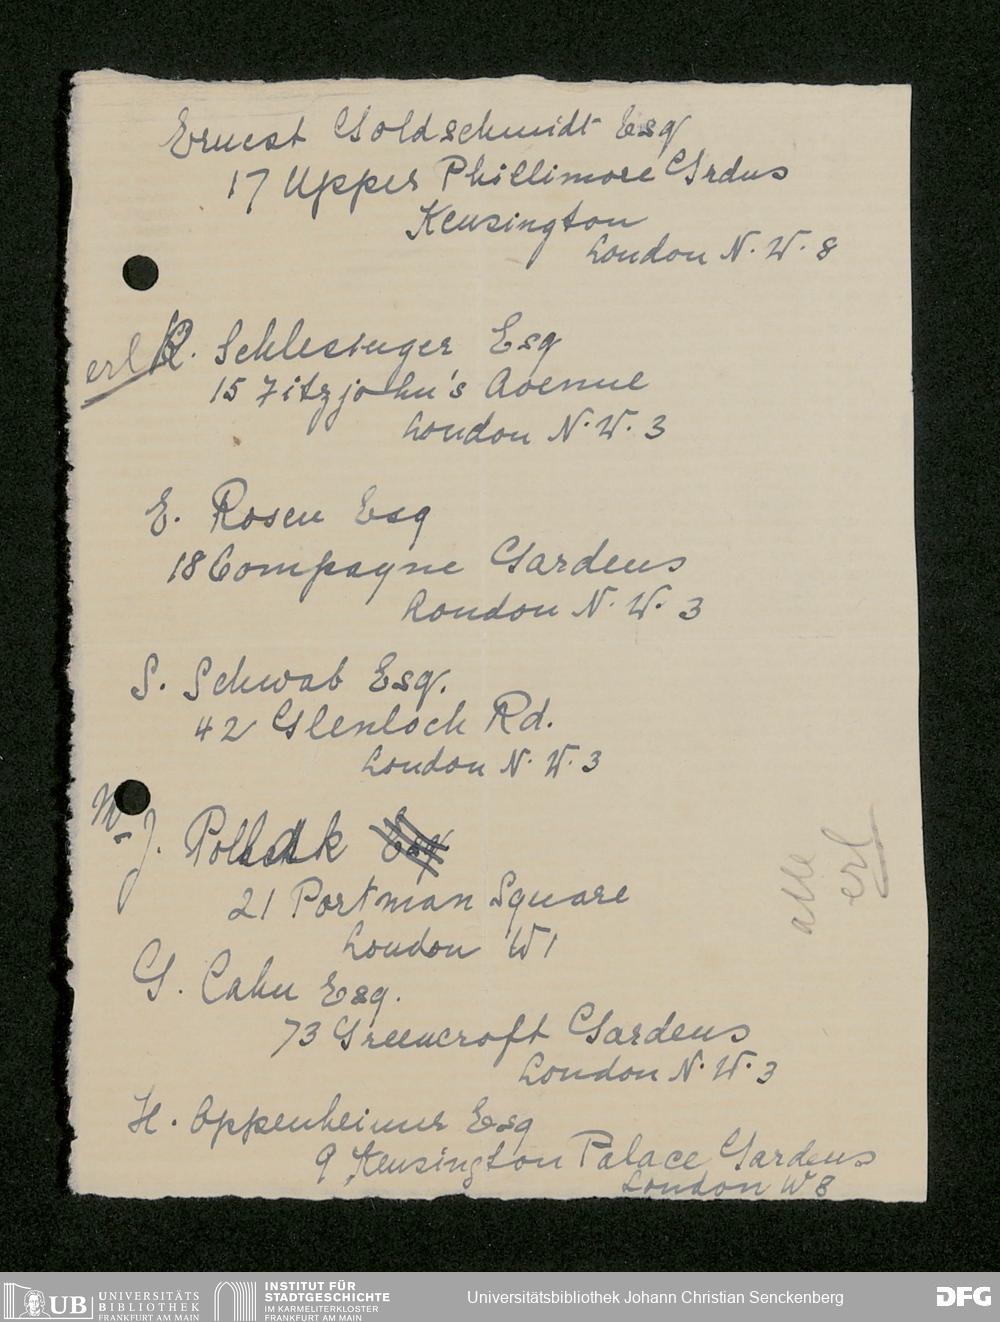 Ernest Goldschmidt Esq
17 Upper Phillimore Grdns
Kensington
London N. W. 8
erl R. Schlesinger Esq
15 Fitzjohn's Avenue
London N. W. 3
E. Rosen Esq
18 Compayne Gardens
London N. W. 3
S. Schwab Esq.
42 Glenloch Rd.
London N. W. 3
J. Pollak Esq
21 Portman Square
London W1
alle
erl
G. Cahn Esq.
73 Greencroft Gardens
London N. W. 3
H. Oppenheimer Esq
9, Kensington Palace Gardens
London W 8
UB UNIVERSITÄTS
BIBLIOTHEK
FRANKFURT AM MAIN
INSTITUT FÜR
STADTGESCHICHTE
IM KARMELITERKLOSTER
FRANKFURT AM MAIN
Universitätsbibliothek Johann Christian Senckenberg
DFG